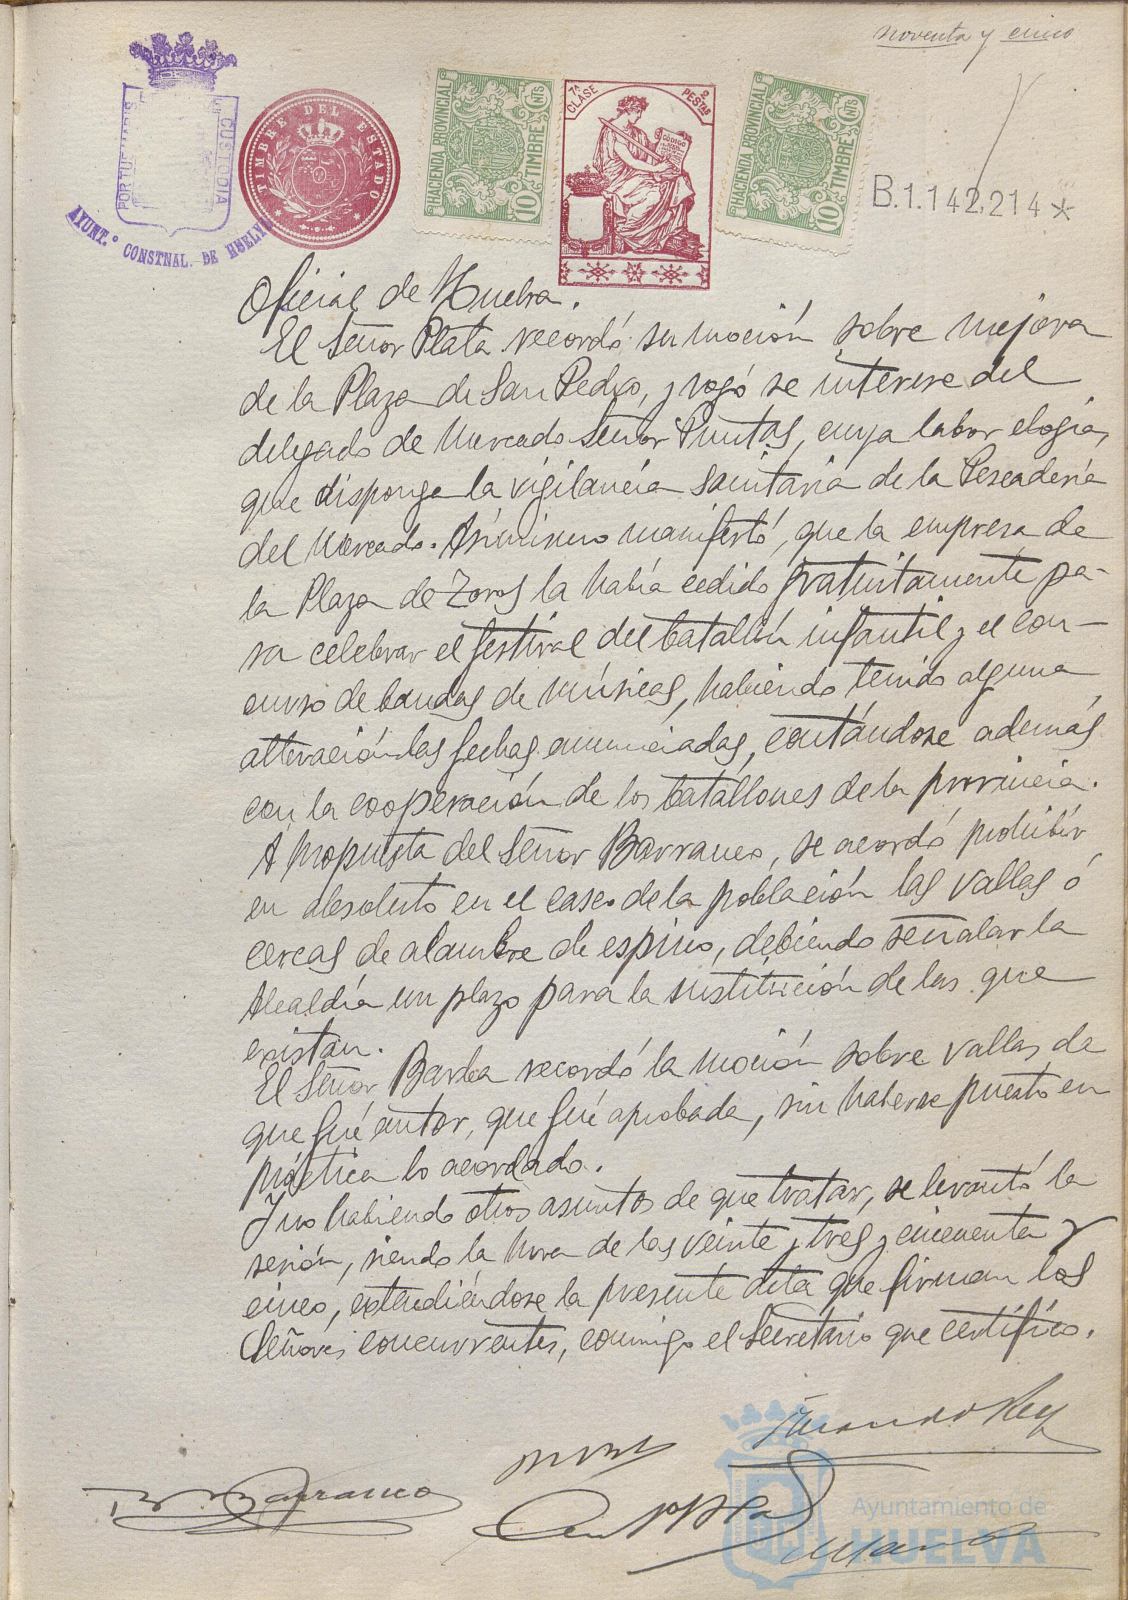 noventa y cinco
PORTUS MARIS
CUSTODIA
AYUNT.º CONSTNAL. DE HUELVA
TIMBRE DEL ESTADO
HACIENDA PROVINCIAL
10 TIMBRE CNTS
7ª CLASE
2 PESTAS
CÓDIGO
HACIENDA PROVINCIAL
10 TIMBRE CNTS
B.1.142,214*
Oficial de Huelva.
El Señor Plata recordó su moción sobre mejora
de la Plaza de San Pedro, y rogó se interese del
delegado de Mercado Señor Puntas, cuya labor elogia,
que disponga la vigilancia sanitaria de la Pescadería
del Mercado. Asimismo manifestó, que la empresa de
la Plaza de Toros la había cedido gratuitamente pa-
ra celebrar el festival del batallón infantil y el con-
curso de bandas de músicas, habiendo tenido alguna
alteración las fechas anunciadas, contándose además
con la cooperación de los batallones de la provincia.
A propuesta del Señor Barranco, se acordó prohibir
en absoluto en el casco de la población las vallas ó
cercas de alambre de espino, debiendo señalar la
Alcaldía un plazo para la sustitución de las que
existan.
El Señor Barba recordó la moción sobre vallas de
que fué autor, que fué aprobada, sin haberse puesto en
práctica lo acordado.
Y no habiendo otros asuntos de que tratar, se levantó la
sesión, siendo la hora de las veinte y tres y cincuenta y
cinco, extendiéndose la presente acta que firman los
Señores concurrentes, conmigo el Secretario que certifico.
Barranco
Ayuntamiento de
HUELVA